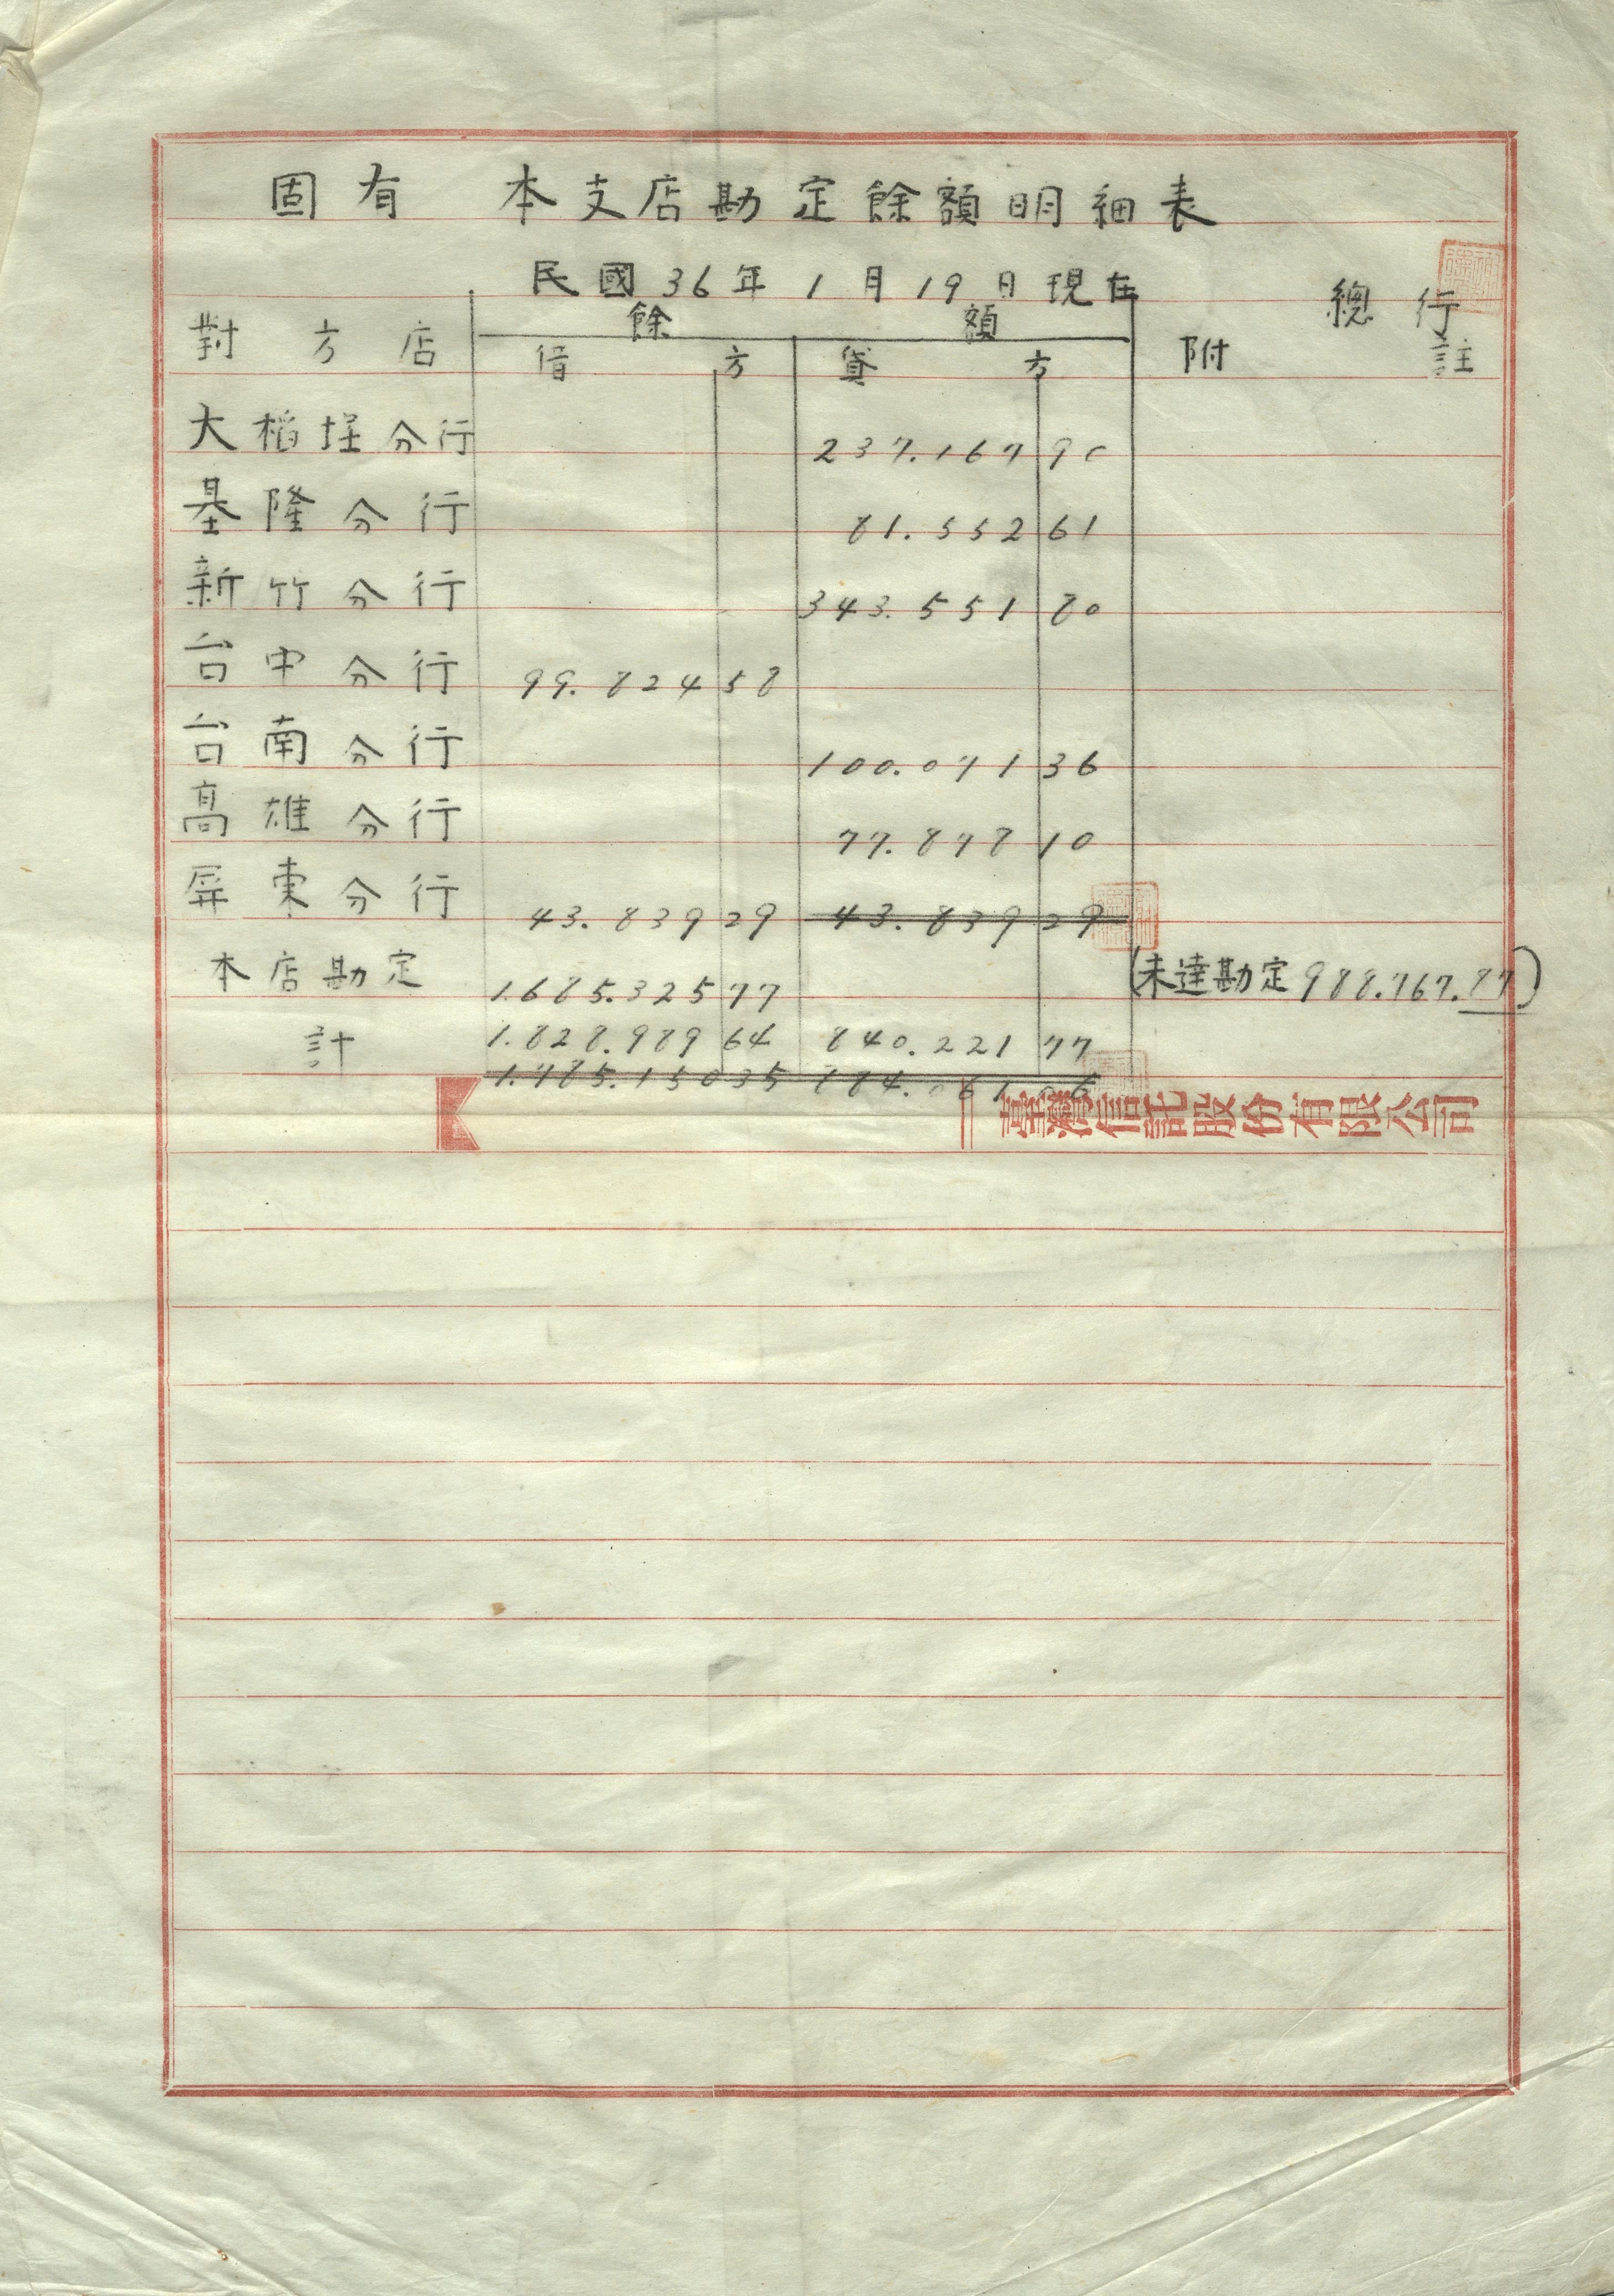 固有 本支店勘定餘額明細表
民國36年1月19日現在
總行
對方店 餘額 附註
借方 貸方
大稻埕分行 237.167 90
基隆分行 81.552 61
新竹分行 343.551 80
台中分行 99.824 58
台南分行 100.071 36
高雄分行 77.878 10
屏東分行 43.839 29 43.839 29
本店勘定 1.685.325 77 (未達勘定988.767.87)
計 1.828.989 64 840.221 77
1.785.150 35 884.061 06
臺灣信託股份有限公司